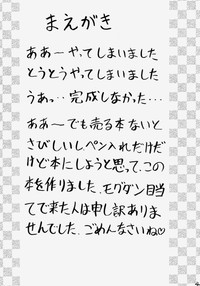 まえがき
ああーやってしまいました
とうとうやってしまいました
うあっ‥完成しなかった…
ああ〜でも売る本ないと
さびしいしペン入れだけだ
けど本にしようと思って、この
本を作りました、モグダン目当
てで来た人は申し訳ありま
せんでした、ごめんなさいね♡